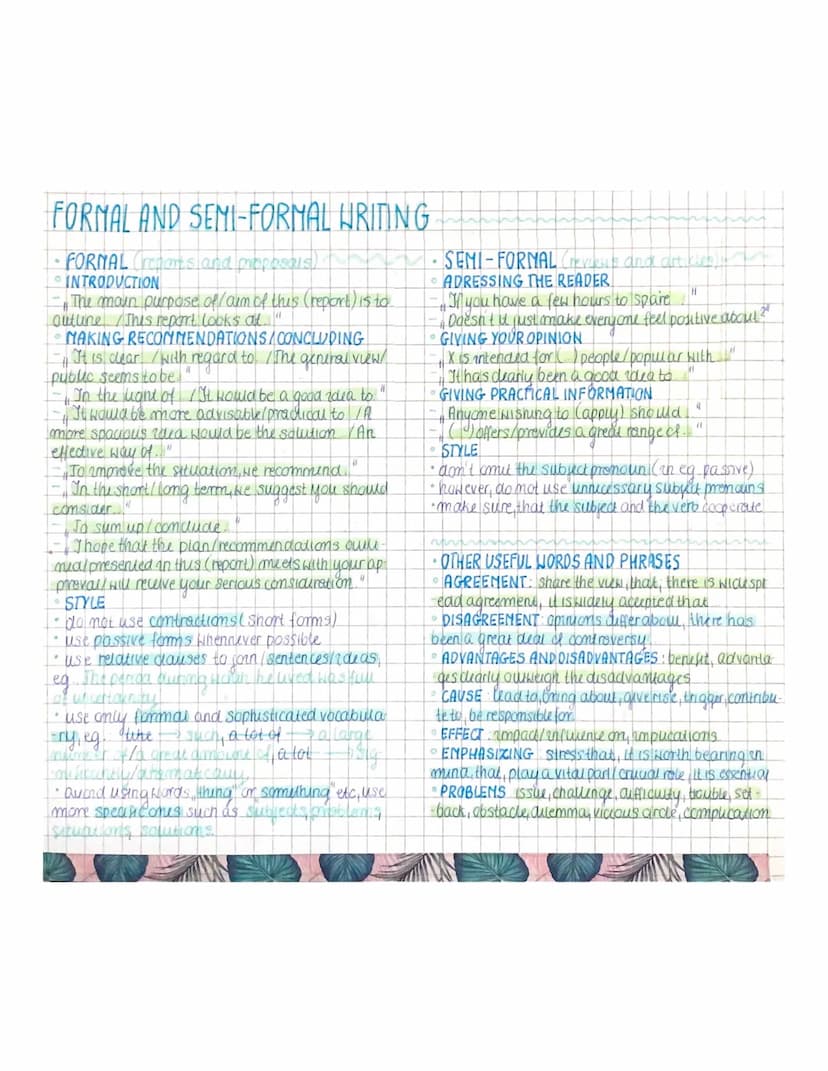 FORMAL AND SEMI-FORMAL WRITING
• FORMAL (reports and proposals)
° INTRODUCTION
- „The main purpose of/aim of this (report) is to
outline.../This report looks at..."
° MAKING RECOMMENDATIONS/CONCLUDING
- „It is clear.../with regard to.../The general view/
public seems to be..."
- „In the light of.../It would be a good idea to..."
- „It would be more advisable/practical to.../A
more spacious idea would be the solution.../An
effective way of..."
- „To improve the situation, we recommend..."
- „In the short/long term, we suggest you should
consider..."
- „To sum up/conclude..."
- „I hope that the plan/recommendations outli-
ned/presented in this (report) meets with your ap-
proval/will receive your serious consideration."
° STYLE
• do not use contractions (short forms)
• use passive forms whennever possible
• use relative clauses to join/sentences/ideas,
eg. The period during which he lived was full
of uncertainty
• use only formal and sophisticated vocabula
-ry, eg. like → such, a lot of → a large
number of/a great amount of, a lot → sig-
nificantly/dramatically
• avoid using words „thing" or „something" etc, use
more specific ones such as subjects, problems,
situations, solutions.
• SEMI-FORMAL (reviews and articles)
° ADRESSING THE READER
- „If you have a few hours to spare..."
- „Doesn't it just make everyone feel positive about?"
° GIVING YOUR OPINION
- „X is intended for (...) people/popular with..."
- „It has clearly been a good idea to..."
° GIVING PRACTICAL INFORMATION
- „Anyone wishing to (apply) should..."
- „(...) offers/provides a great range of..."
° STYLE
• don't omit the subject pronoun (in eg. passive)
• however, do not use unnecessary subject pronouns
• make sure, that the subject and the verb cooperate
• OTHER USEFUL WORDS AND PHRASES
° AGREEMENT: share the view, that, there is widespr
ead agreement, it is widely accepted that
° DISAGREEMENT: opinions differ about, there has
been a great deal of controversy
° ADVANTAGES AND DISADVANTAGES: benefit, advanta-
ges clearly outweigh the disadvantages
° CAUSE: lead to, bring about, give rise, trigger, contribu-
te to, be responsible for
° EFFECT: impact/influence on, implications
° EMPHASIZING: stress that, it is worth bearing in
mind, that, play a vital part/crucial role, it is essential
° PROBLEMS: issue, challenge, difficulty, trouble, set-
-back, obstacle, dilemma, vicious circle, complication